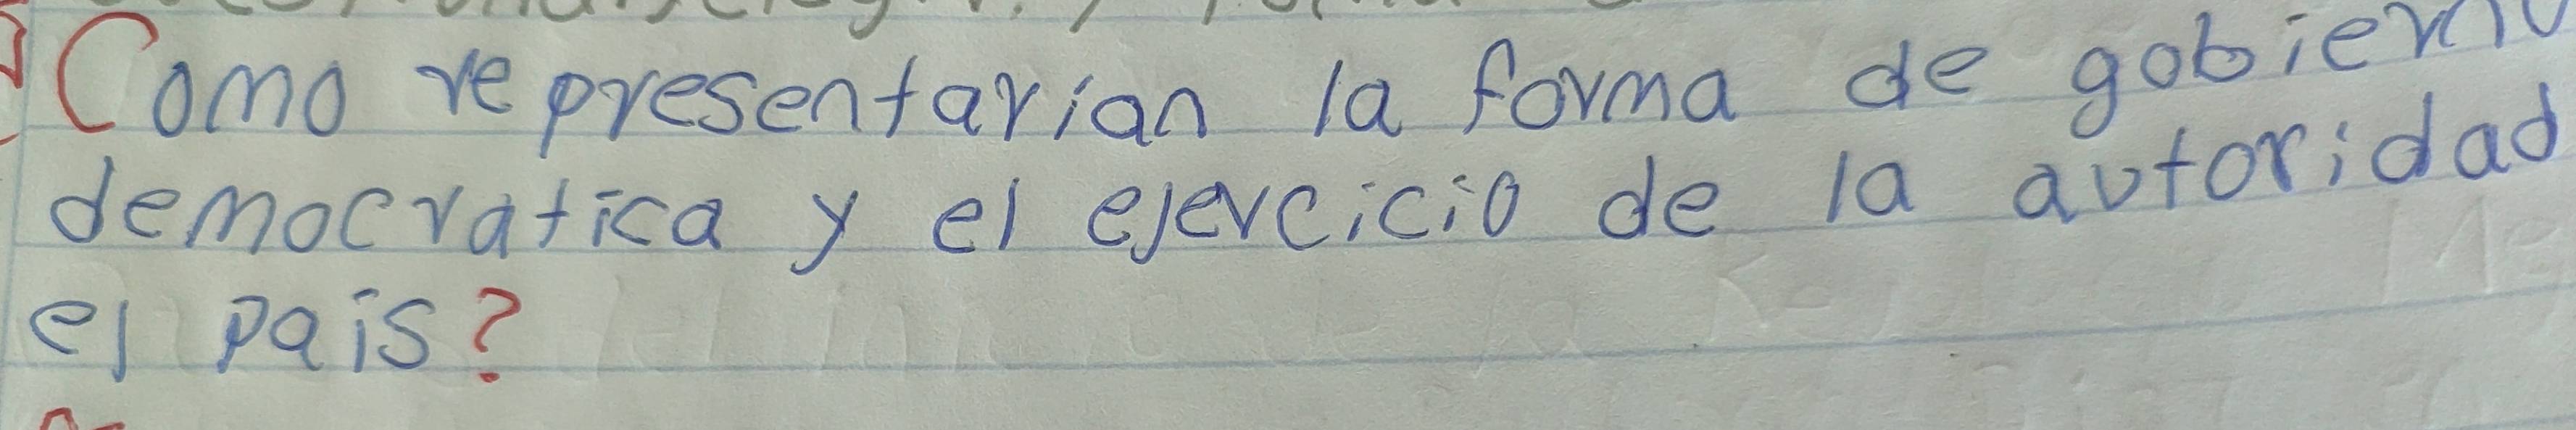 ¿Como representarian la forma de gobierno
democratica y el ejercicio de la autoridad
el pais?